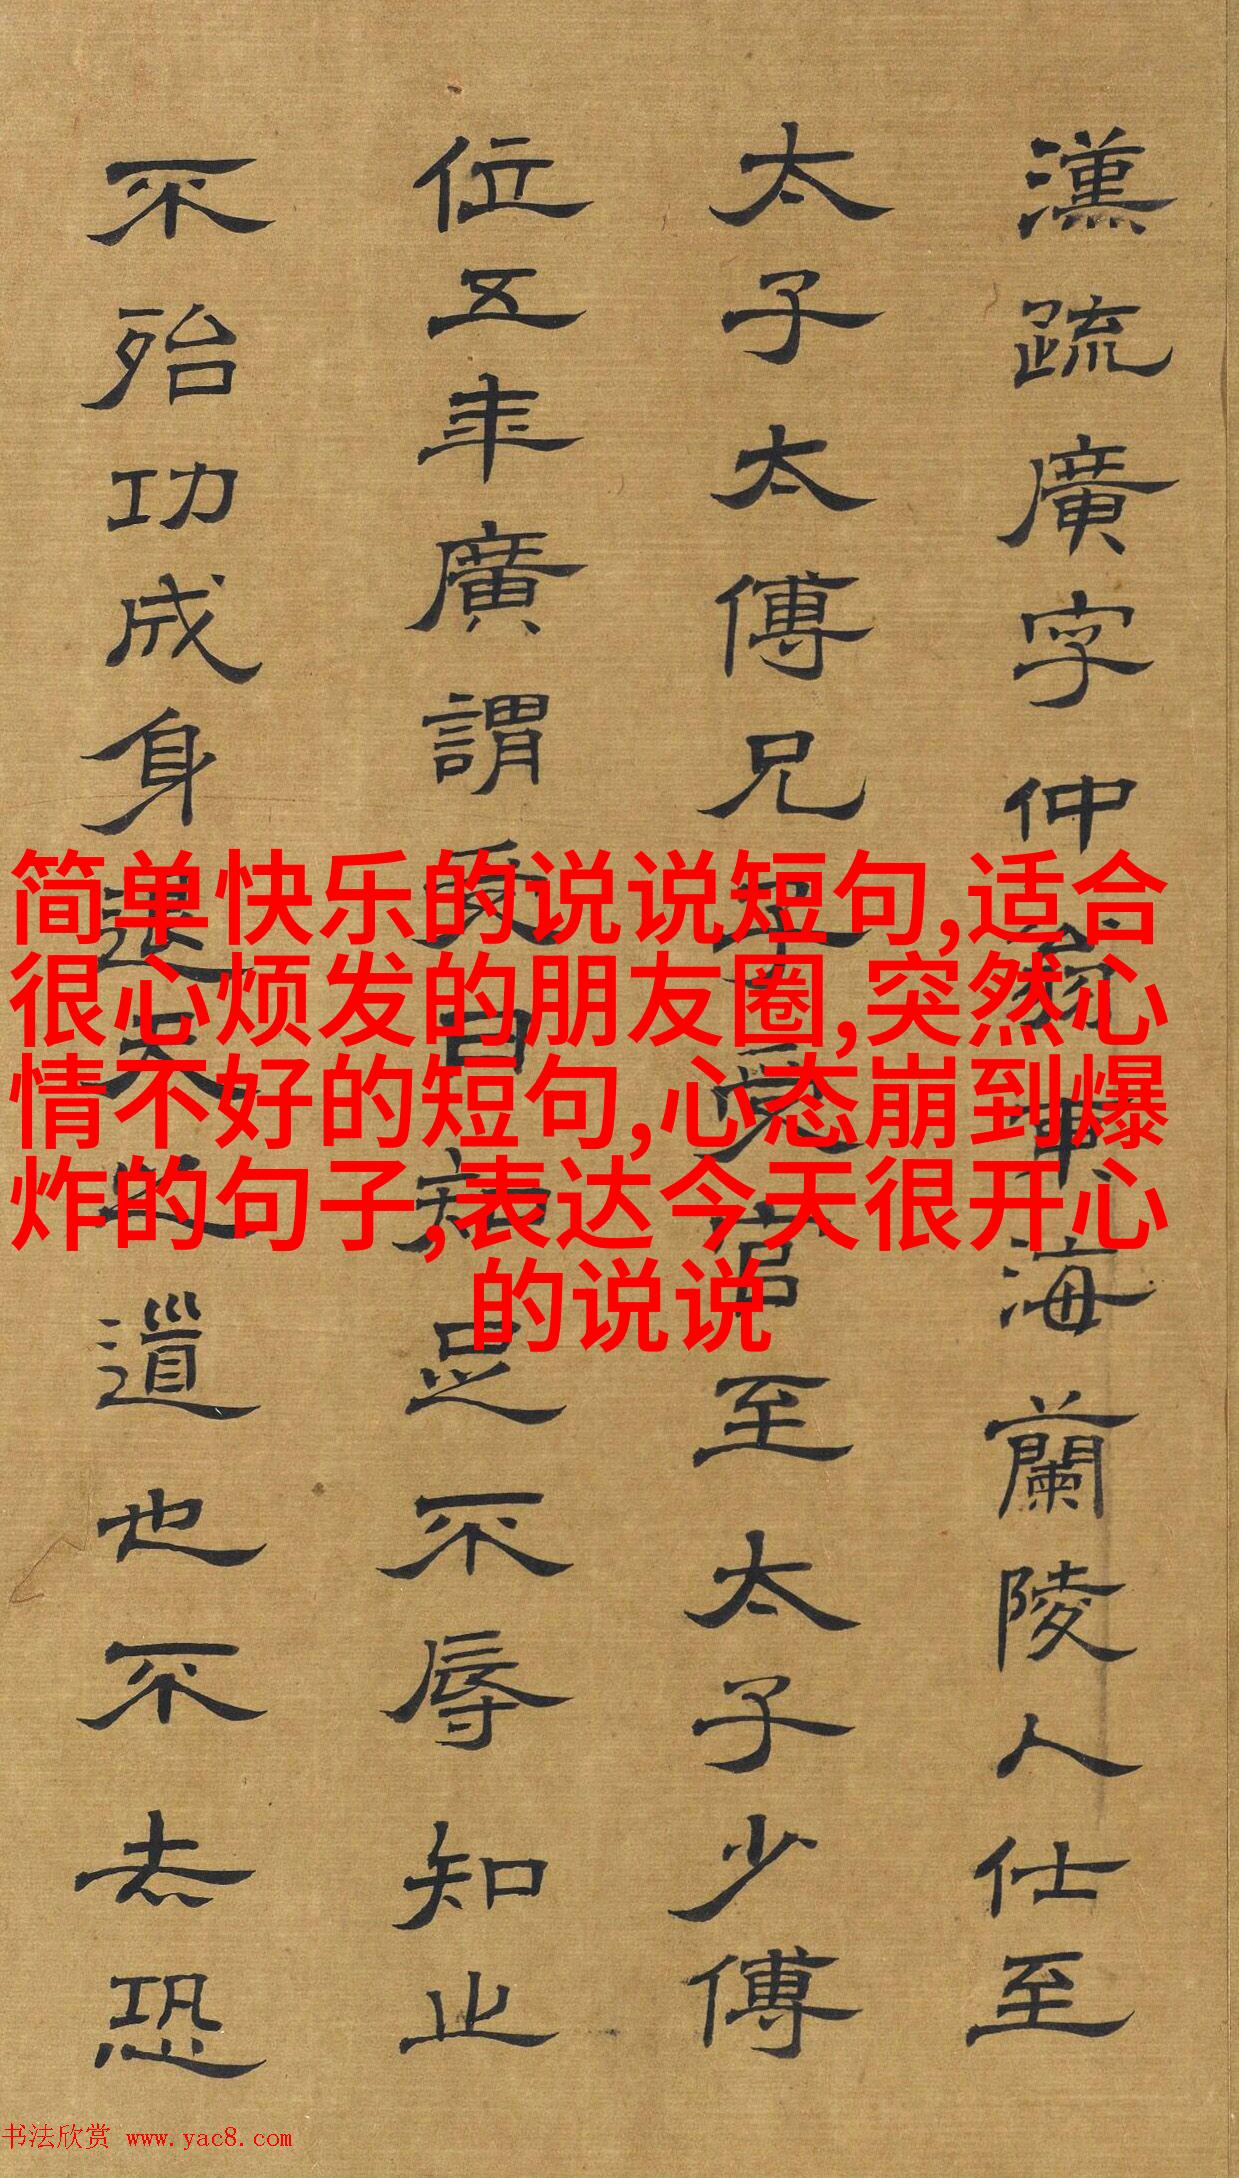 漢疏廣字仲翁東海蘭陵人仕至
太子太傅兄子受官至太子少傅
位五年廣謂受曰知足不辱知止
不殆功成身退天之道也不去恐
简单快乐的说说短句,适合
很心烦发的朋友圈,突然心
情不好的短句,心态崩到爆
炸的句子,表达今天很开心
的说说
书法欣赏 www.yac8.com